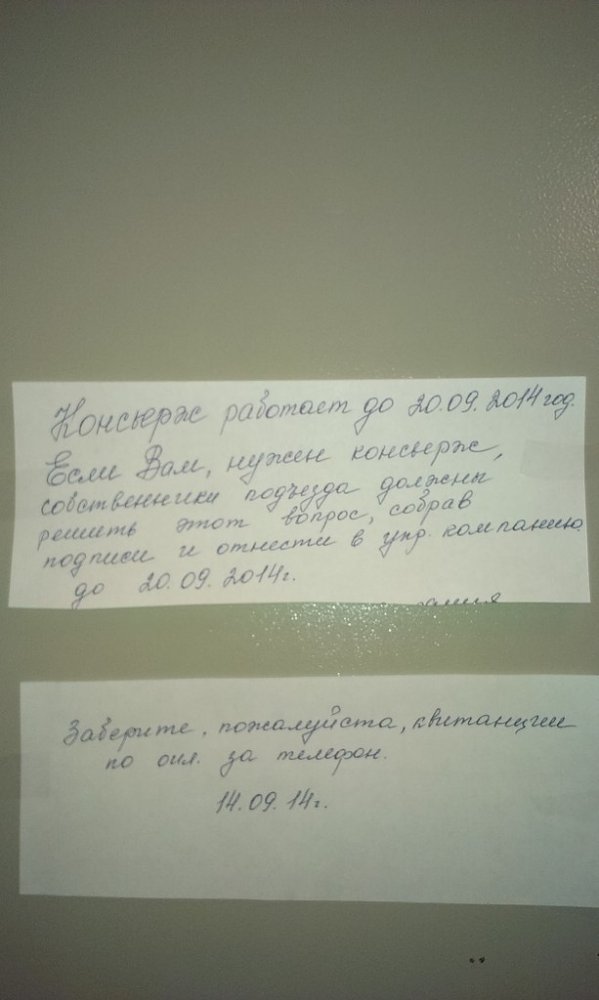 Консьерж работает до 20.09.2014 год.
Если Вам, нужен консьерж,
собственники подъезда должны
решить этот вопрос, собрав
подписи и отнести в упр. компанию
до 20.09.2014г.
Заберите, пожалуйста, квитанции
по опл. за телефон.
14.09.14г.